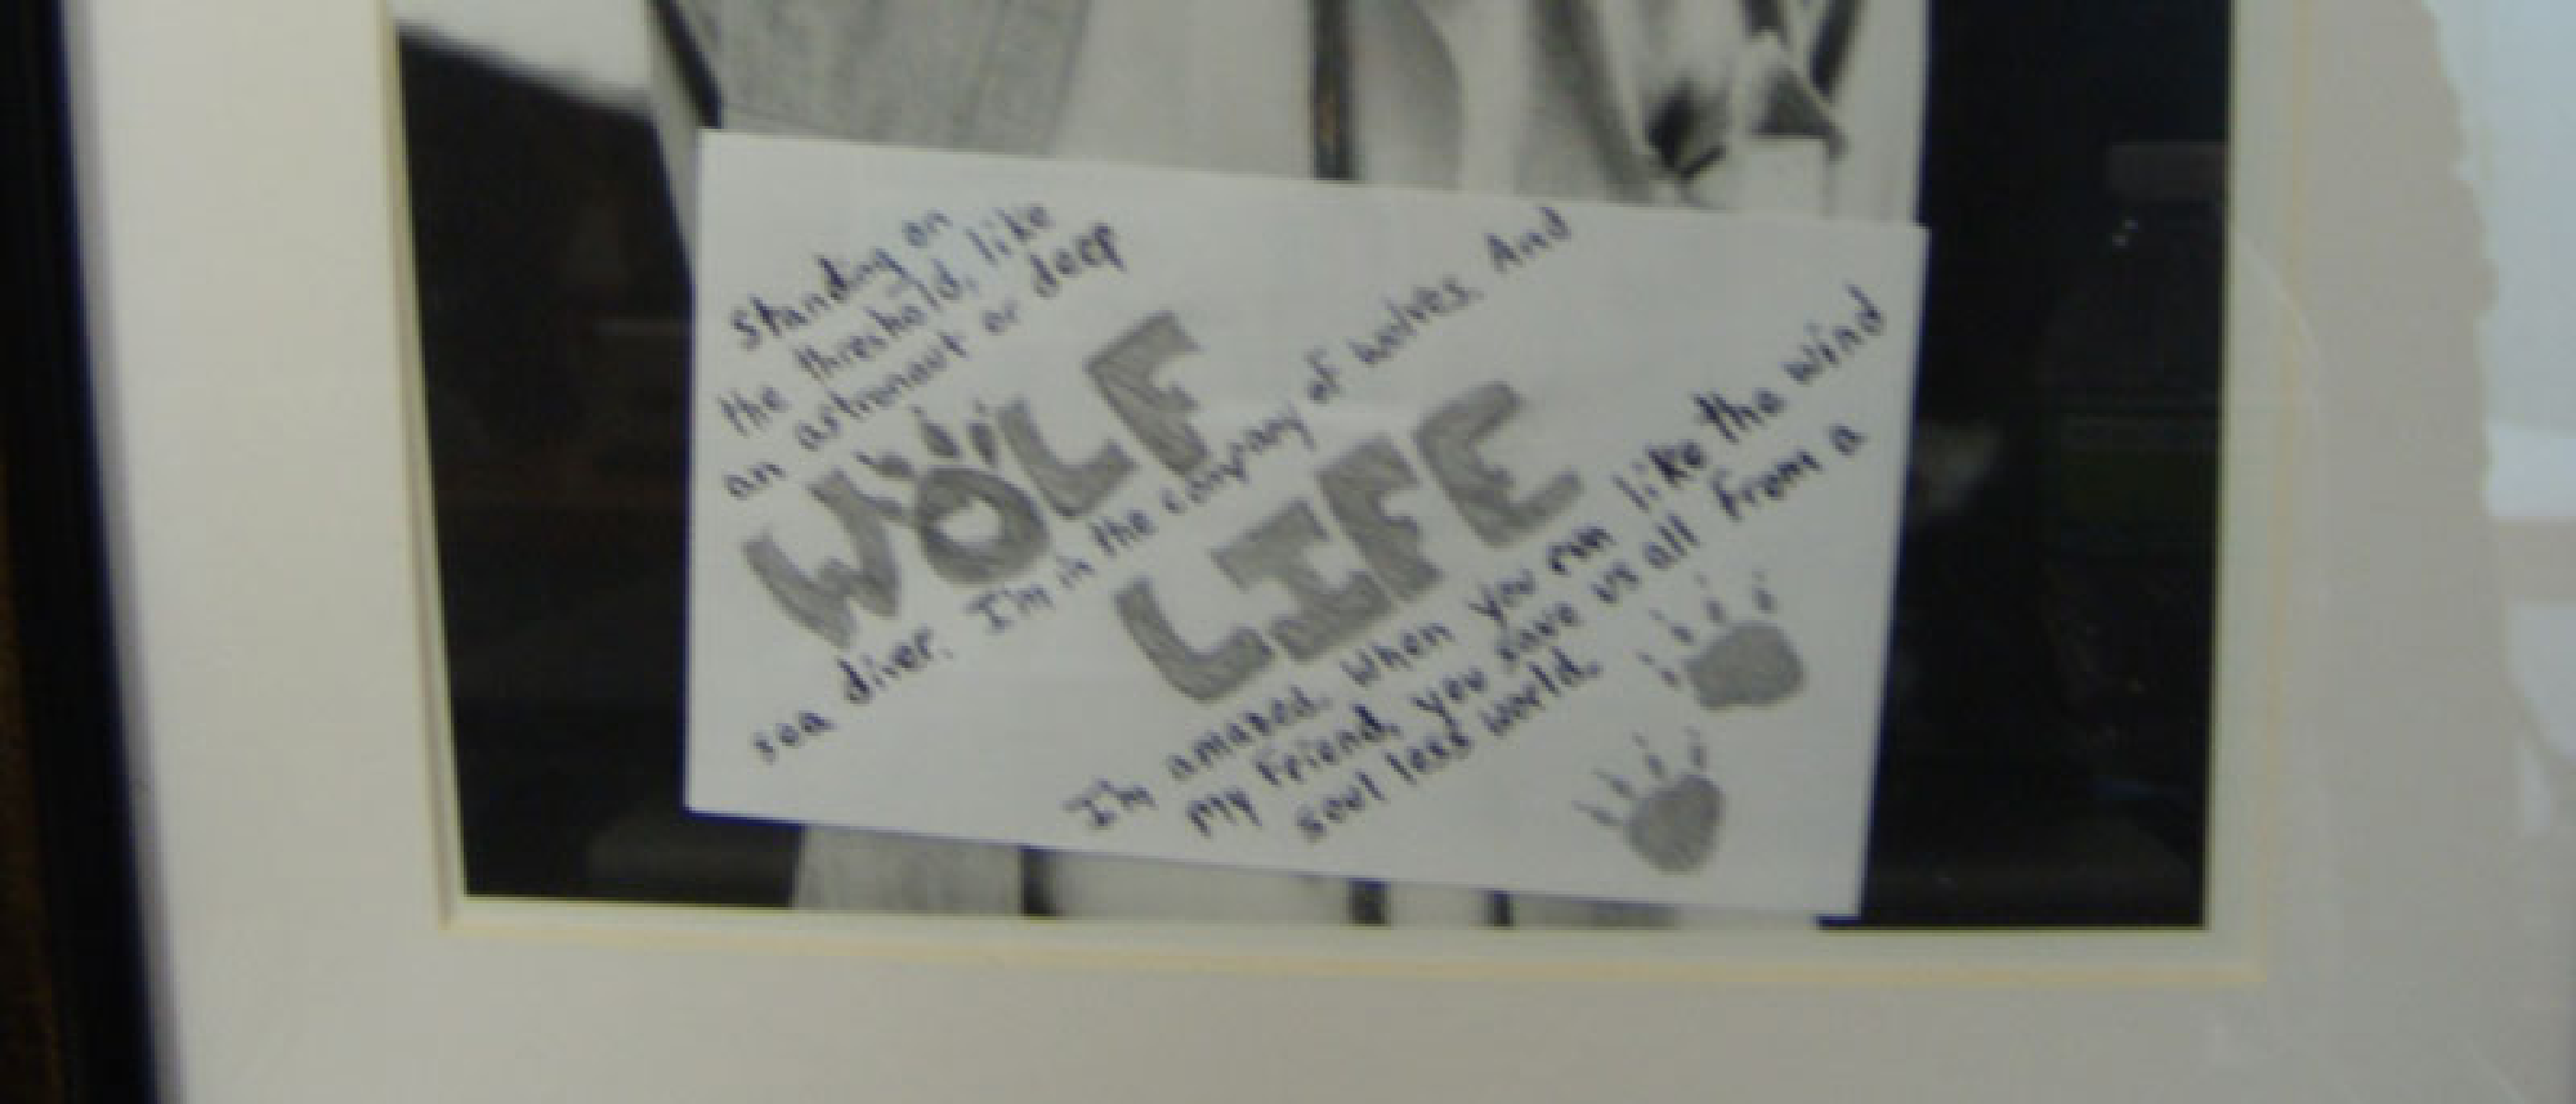 Standing on
the threshold, like
an astronaut or deep
WOLF
sea diver. I'm in the company of wolves. And
LIFE
I'm amazed. When you run like the wind
my friend, you save us all from a
soul less world.